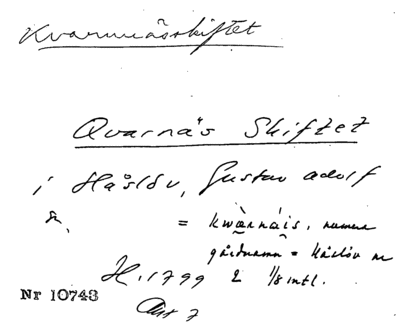 Kvarnnässkiftet
Qvarnäs Skiftet
i Håslöv, Gustav Adolf
sn.
= kwà̤rnái̯s, numera
gårdnamn = Håslöv nr
H. 1799 2 1/8 mtl.
Nr 10743
Akt 7